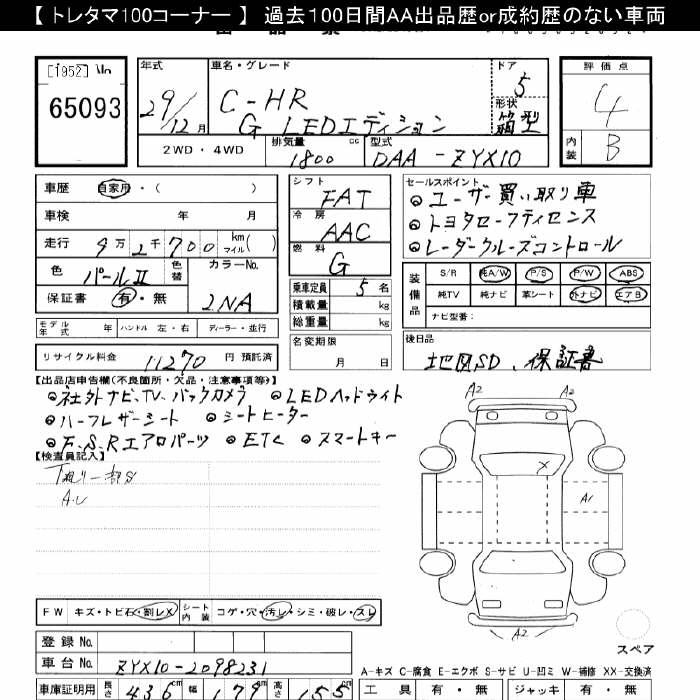 【 トレタマ100コーナー 】 過去100日間AA出品歴or成約歴のない車両
[1952]
65093
年式
29/12月
車名・グレード
C-HR
G LEDエディション
ドア 5
形状 箱型
評価点
4
内装 B
2WD・4WD
排気量 1800 cc
型式 DAA-ZYX10
車歴 自家用・( )
車検 年 月
走行 9万2千700 km マイル( )
色 パールⅡ
色替
カラーNo. 2NA
保証書 有・無
シフト FAT
冷房 AAC
燃料 G
乗車定員 5 名
積載量 kg
総重量 kg
セールスポイント
◎ユーザー買い取り車
◎トヨタセーフティセンス
◎レーダークルーズコントロール
装備品
S/R 純A/W P/S P/W ABS
純TV 純ナビ 革シート 外ナビ エアB
ナビ型番:
モデル年式 年 ハンドル 左・右 ディーラー・並行
名変期限 月 日
リサイクル料金 11270 円 預託済
後日品
地図SD、保証書
【出品店申告欄(不良箇所・欠品・注意事項等)】
◎社外ナビ、TV、バックカメラ ◎LEDヘッドライト
◎ハーフレザーシート ◎シートヒーター
◎F、S、Rエアロパーツ ◎ETC ◎スマートキー
【検査員記入】
A2 A2
X
A1
A2
FW キズ・トビ石・割レX シート内装 コゲ・穴・汚レ・シミ・破レ・スレ
スペア
登録 No.
車台 No. ZYX10-2098231
A-キズ C-腐食 E-エクボ S-サビ U-凹ミ W-補修 XX-交換済
車庫証明用 長さ 436 cm 幅 179 cm 高さ 155 cm
工具 有・無 ジャッキ 有・無